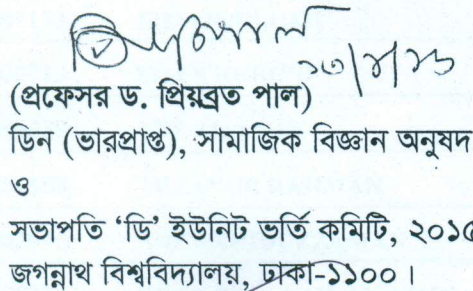 (প্রফেসর ড. প্রিয়ব্রত পাল)
ডিন (ভারপ্রাপ্ত), সামাজিক বিজ্ঞান অনুষদ
ও
সভাপতি ‘ডি’ ইউনিট ভর্তি কমিটি, ২০১৫
জগন্নাথ বিশ্ববিদ্যালয়, ঢাকা-১১০০।